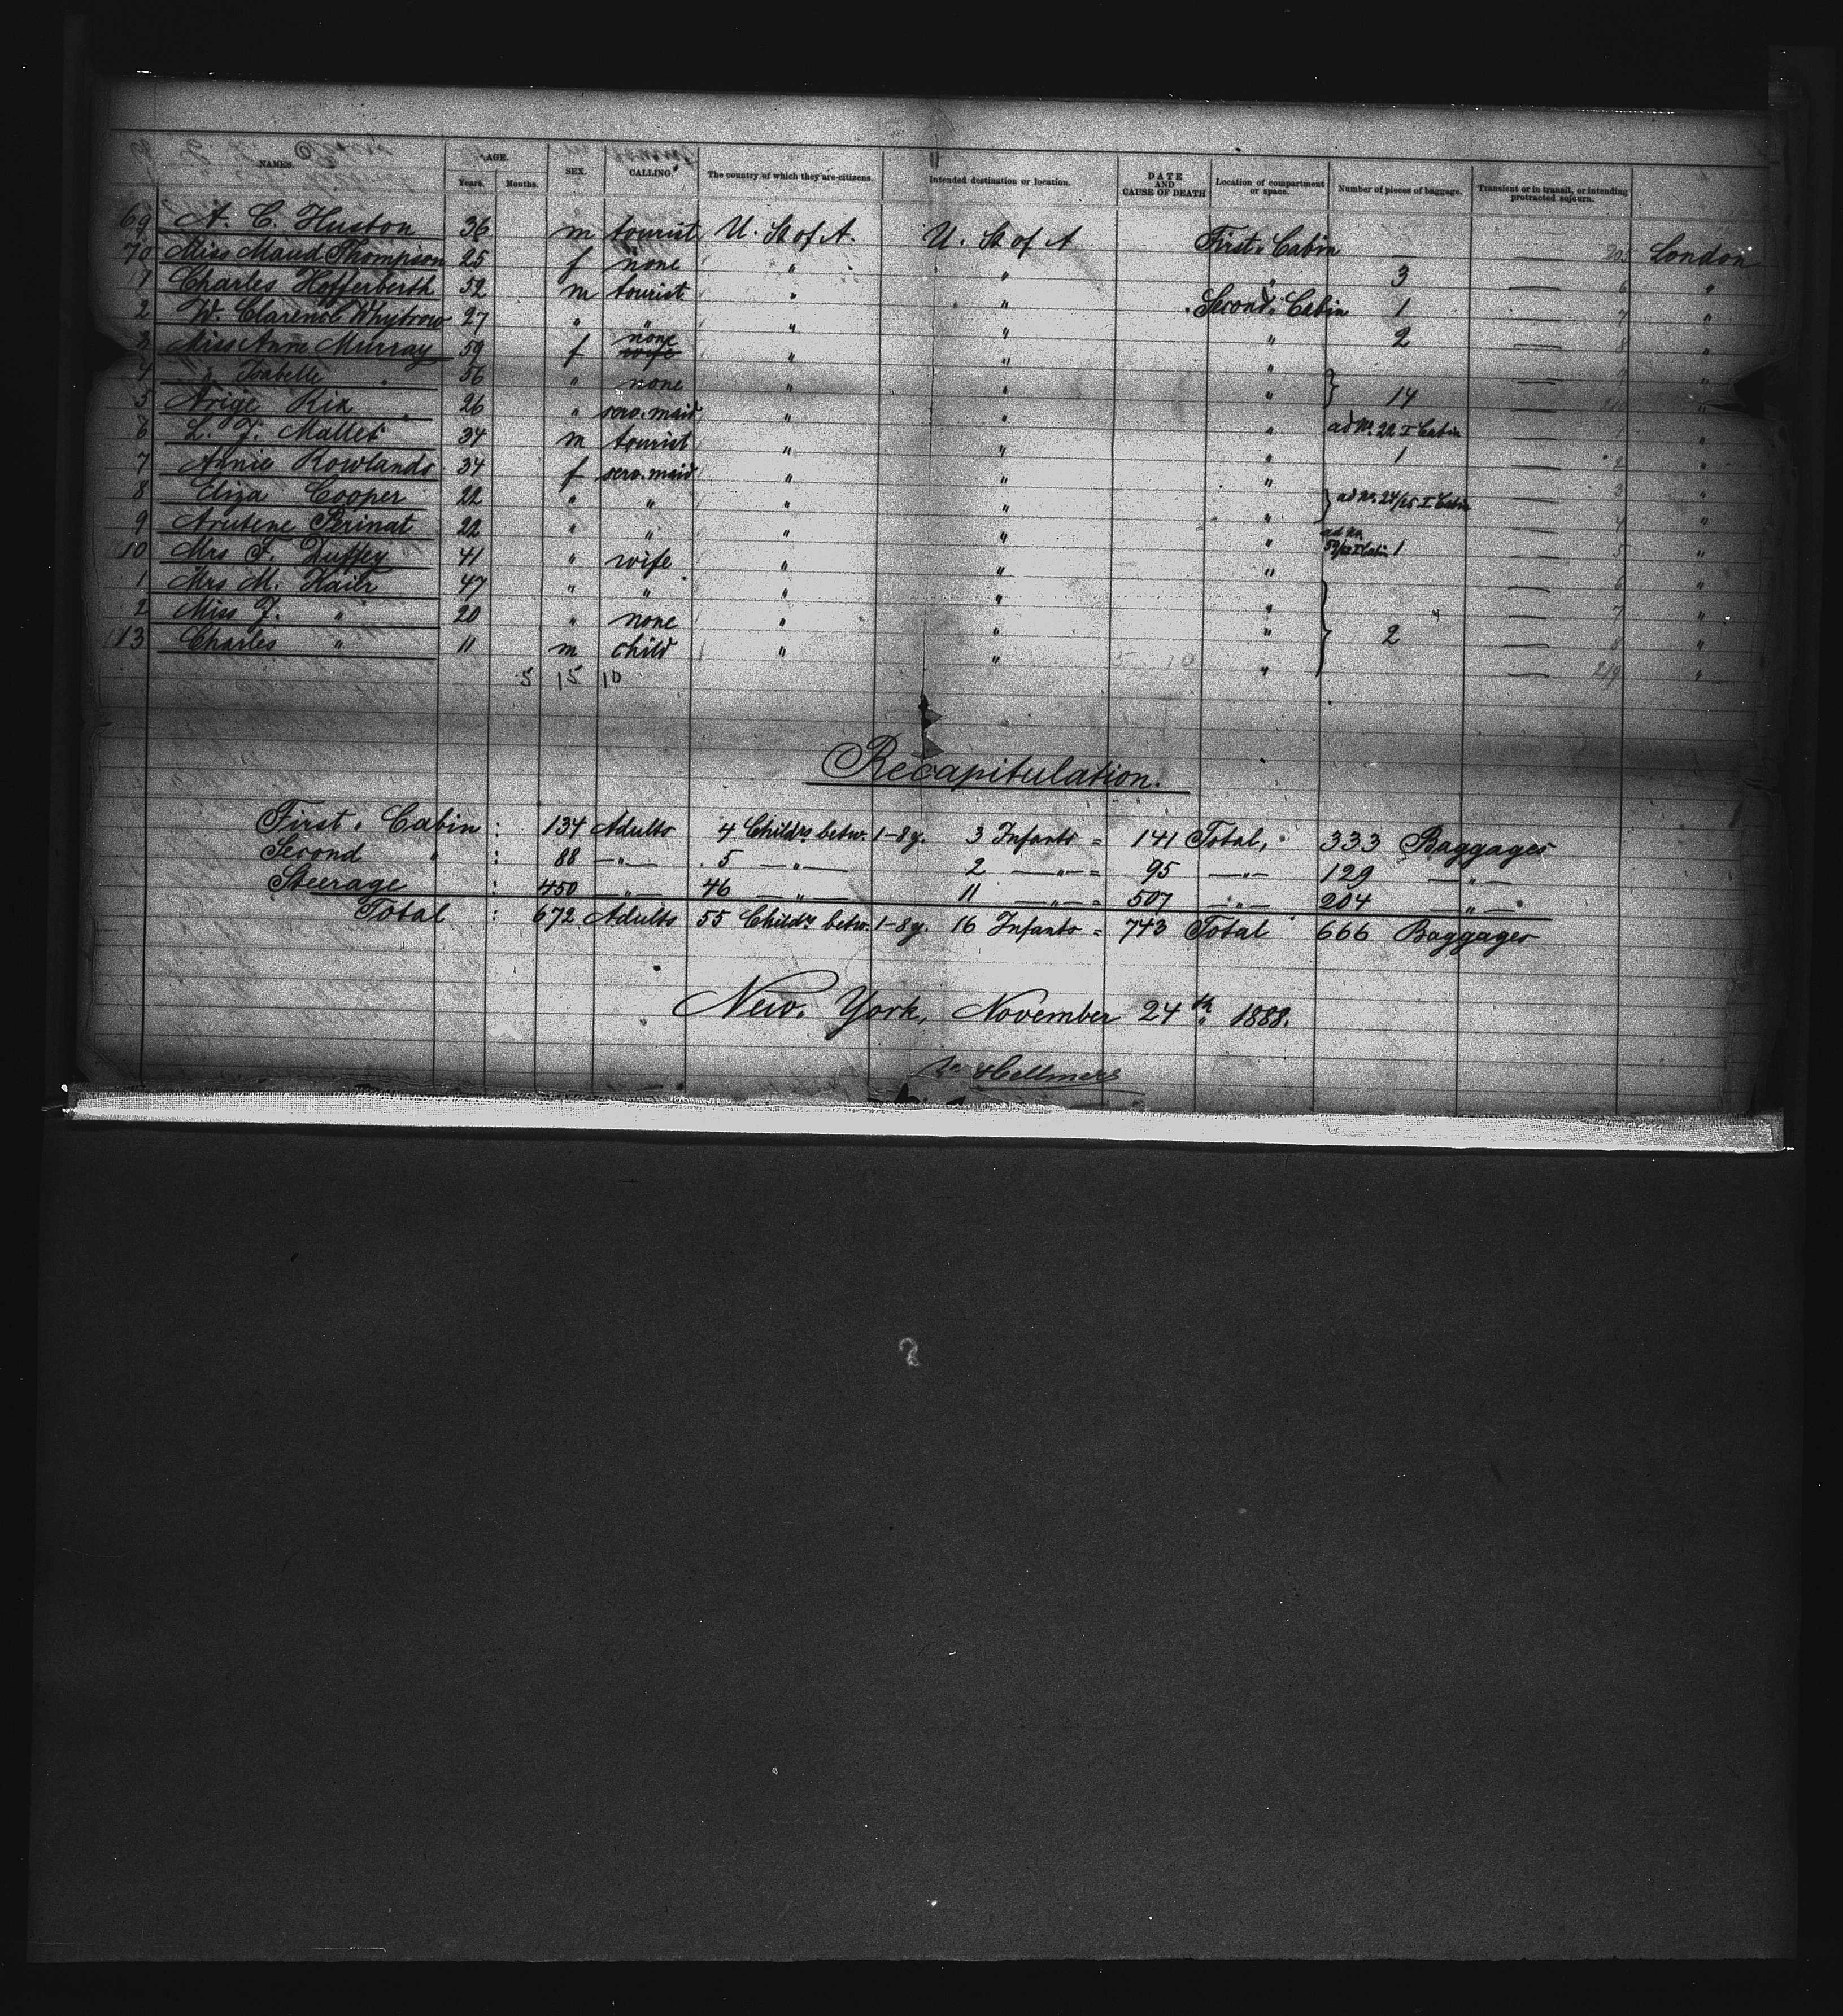 NAMES. AGE. Years. Months. SEX. CALLING. The country of which they are citizens. Intended destination or location. DATE AND CAUSE OF DEATH Location of compartment or space. Number of pieces of baggage. Transient or in transit, or intending protracted sojourn.
69 A. C. Huston 36 m tourist U. St of A. U. St of A First Cabin — — 205 London
70 Miss Maud Thompson 25 f none " " " 3 — 6 "
1 Charles Hofferberth 52 m tourist " " Second Cabin 1 — 7 "
2 W. Clarence Whybrow 27 " " " " " 2 — 8 "
3 Miss Anne Murray 59 f none wife " " " — "
4 " Isabelle " 56 " none " " " } 14 — "
5 Rix 26 " serv. maid " " " ad No. 22 I Cabin — 1 "
6 L. J. Mallet 34 m tourist " " " 1 — 2 "
7 Annie Rowlands 34 f serv. maid " " " — 3 "
8 Eliza Cooper 22 " " " " " } ad No. 24/25 I Cabin — 4 "
9 22 " " " " " ad No. I Cabin 1 — 5 "
10 Mrs F. Duffey 41 " wife " " " — 6 "
1 Mrs M. 47 " " " " " — 7 "
2 Miss J. " 20 " none " " " } 2 — 8 "
13 Charles " 11 m child " " " — 219 "
5 15 10
5 10
Recapitulation.
First Cabin : 134 Adults 4 Childrs betw. 1-8 y. 3 Infants = 141 Total, 333 Baggages
Second " : 88 —"— 5 —"— 2 —"— = 95 —"— 129 —"—
Steerage : 450 —"— 46 —"— 11 —"— = 507 —"— 204 —"—
Total : 672 Adults 55 Childrs betw. 1-8 y. 16 Infants = 743 Total 666 Baggages
New York, November 24th 1888.
Hellmers